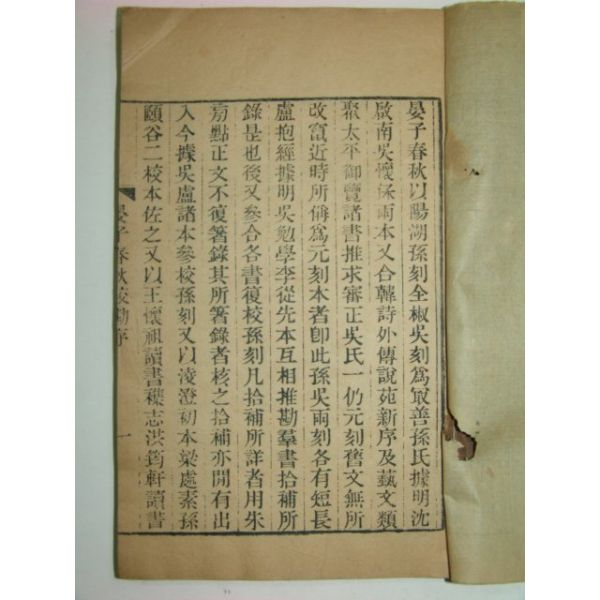 晏子春秋以陽湖孫刻全椒吳刻爲㝡善孫氏據明沈
啟南吳懷保兩本又合韓詩外傳說苑新序及藝文類
聚太平御覽諸書推求審正吳氏一仍元刻舊文無所
改竄近時所稱爲元刻本者卽此孫吳兩刻各有短長
盧抱經據明吳勉學李從先本互相推勘羣書拾補所
錄是也後又參合各書復校孫刻凡拾補所詳者用朱
㫄點正文不復箸錄其所箸錄者核之拾補亦閒有出
入今據吳盧諸本參校孫刻又以淩澄初本梁處素孫
頤谷二校本佐之又以王懷祖讀書襍志洪筠軒讀書
晏子春秋校勘序 一